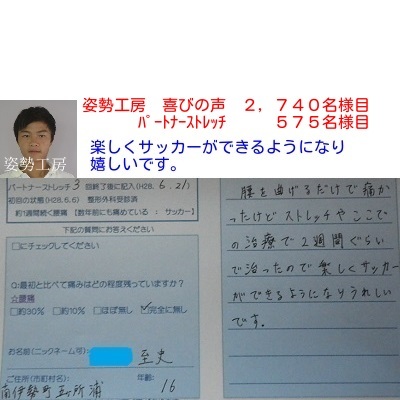 姿勢工房　喜びの声　２，７４０名様目
ﾊﾟｰﾄﾅｰｽﾄﾚｯﾁ　５７５名様目
楽しくサッカーができるようになり
嬉しいです。
姿勢工房
パートナーストレッチ 3 回終了後に記入(H28. 6.21)
初回の状態 (H28.6.6) 整形外科受診済
約1週間続く腰痛 【数年前にも痛めている : サッカー】
下記の質問にお答えください
□にチェックしてください
Q:最初と比べて痛みはどの程度残っていますか?
☆腰痛
□約30% □約10% □ほぼ無し ☑完全に無し
お名前(ニックネーム可): 至史
ご住所(市町村名): 年齢: 16
南伊勢町五ヶ所浦
腰を曲げるだけで痛か
ったけどストレッチやここで
の治療で2週間ぐらい
で治ったので楽しくサッカー
ができるようになりうれしい
です。